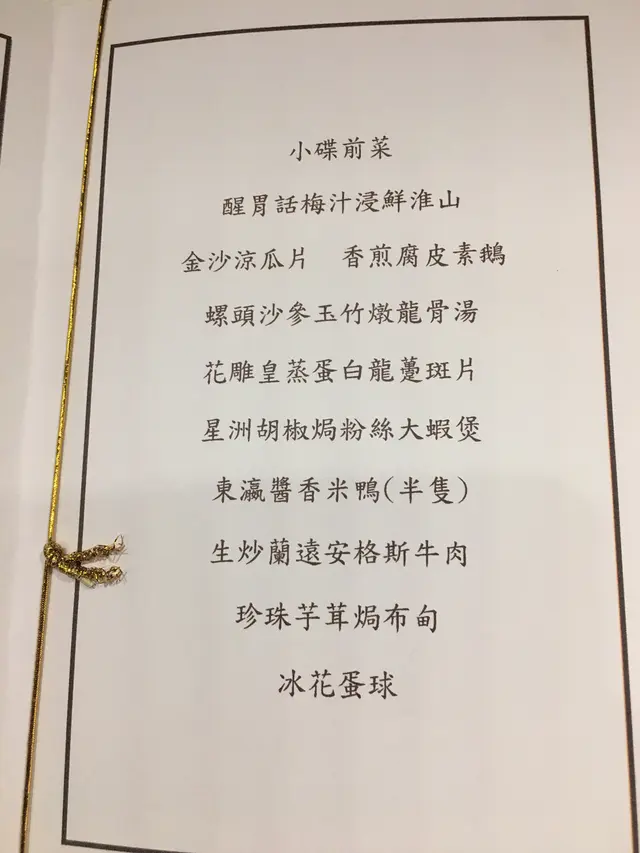 小碟前菜
醒胃話梅汁浸鮮淮山
金沙涼瓜片　香煎腐皮素鵝
螺頭沙參玉竹燉龍骨湯
花雕皇蒸蛋白龍躉斑片
星洲胡椒焗粉絲大蝦煲
東瀛醬香米鴨(半隻)
生炒蘭遠安格斯牛肉
珍珠芋茸焗布甸
冰花蛋球